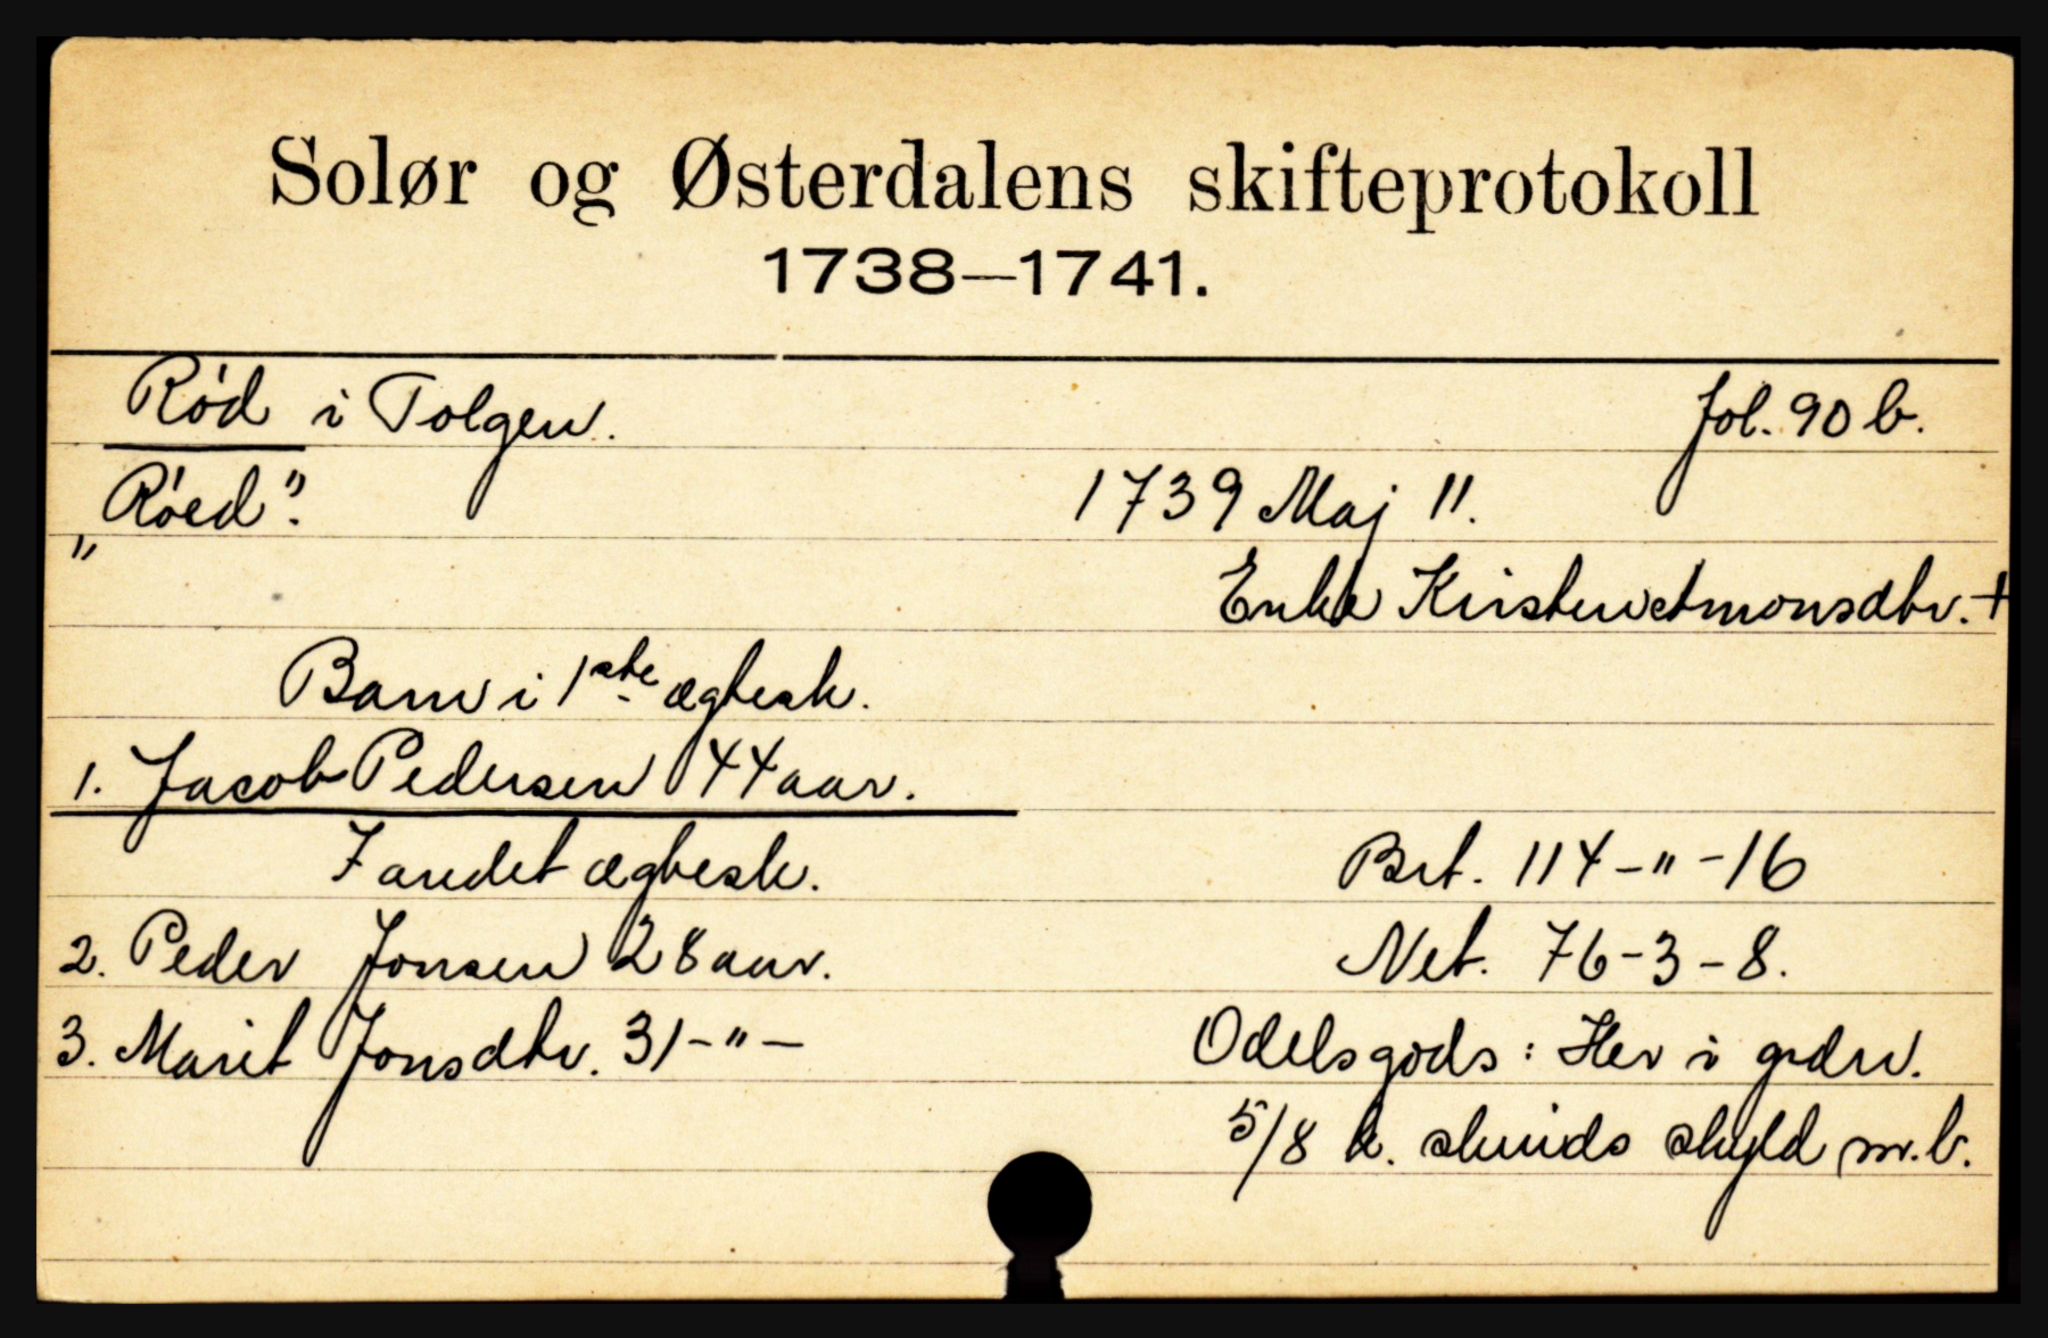 Solør og Østerdalens skifteprotokoll
1738—1741.
Rød i Tolgen. fol. 90 b.
„Røed". 1739 Maj 11.
Enke Kirsten Amonsdtr. +
Barn i 1ste ægtesk.
1. Jacob Pedersen 44 aar.
I andet ægtesk. Brt. 114-"-16
2. Peder Jonsen 28 aar. Net. 76-3-8.
3. Marit Jonsdtr. 31-"- Odelsgods: Her i grdn.
5/8 k. skinds skyld m.b.